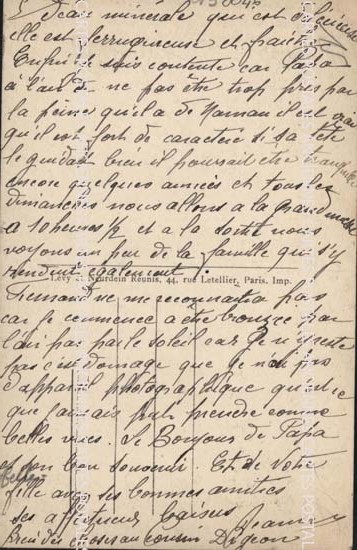 L'eau minérale qui est délicieuse
elle est ferrugineuse et fraiche
Enfin je suis contente car Papa
a l'air de ne pas être trop pris par
la peine qu'il a de Maman il est vrai
qu'il est fort de caractère si sa tête
le guidait bien il pourrait être tranquille
encore quelques années et tous les
dimanches nous allons a la grand messe
a 10 heures 1/2 et a la sortie nous
voyons un peu de la famille qui s'y
rendent également
Lévy et Neurdein Réunis, 44, rue Letellier, Paris. Imp.
Fernand ne me reconnaitra pas
car je commence a être bronzée par
l'air pas par le soleil car je n'y reste
pas c'est domage que je n'ai pas
d'appareil photographique qu'est ce
que j'aurais pu prendre comme
belles vues. Le Bonjour de Papa
et son bon souvenir. Et de Votre
fille avec ses bonnes amitiés
ses affectueux baisers Jeanne
bien des choses au cousin